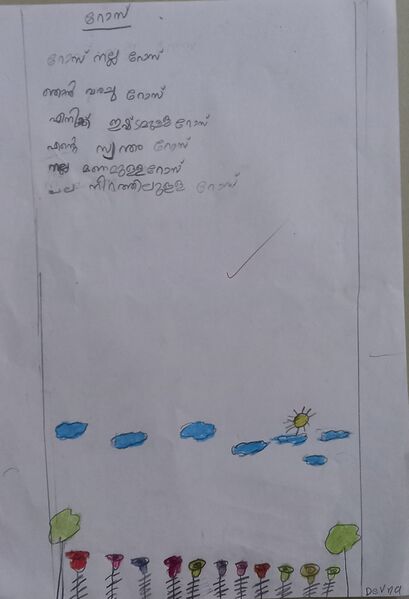 റോസ്
റോസ് നല്ല റോസ്
ഞാൻ വരച്ച റോസ്
എനിക്ക് ഇഷ്ടമുള്ള റോസ്
എന്റെ സ്വന്തം റോസ്
നല്ല മണമുള്ള റോസ്
പല നിറത്തിലുള്ള റോസ്
Devna